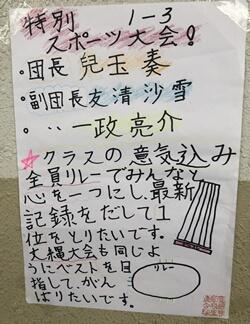 特別 1-3
スポーツ大会!
・団長 兒玉奏
・副団長 友清沙雪
・〃 一政亮介
☆クラスの意気込み
全員リレーでみんなと
心を一つにし、最新
記録をだして1
位をとりたいです。
大縄大会も同じよ
うにベストを目
指して、がん
ばりたいです。
リレー